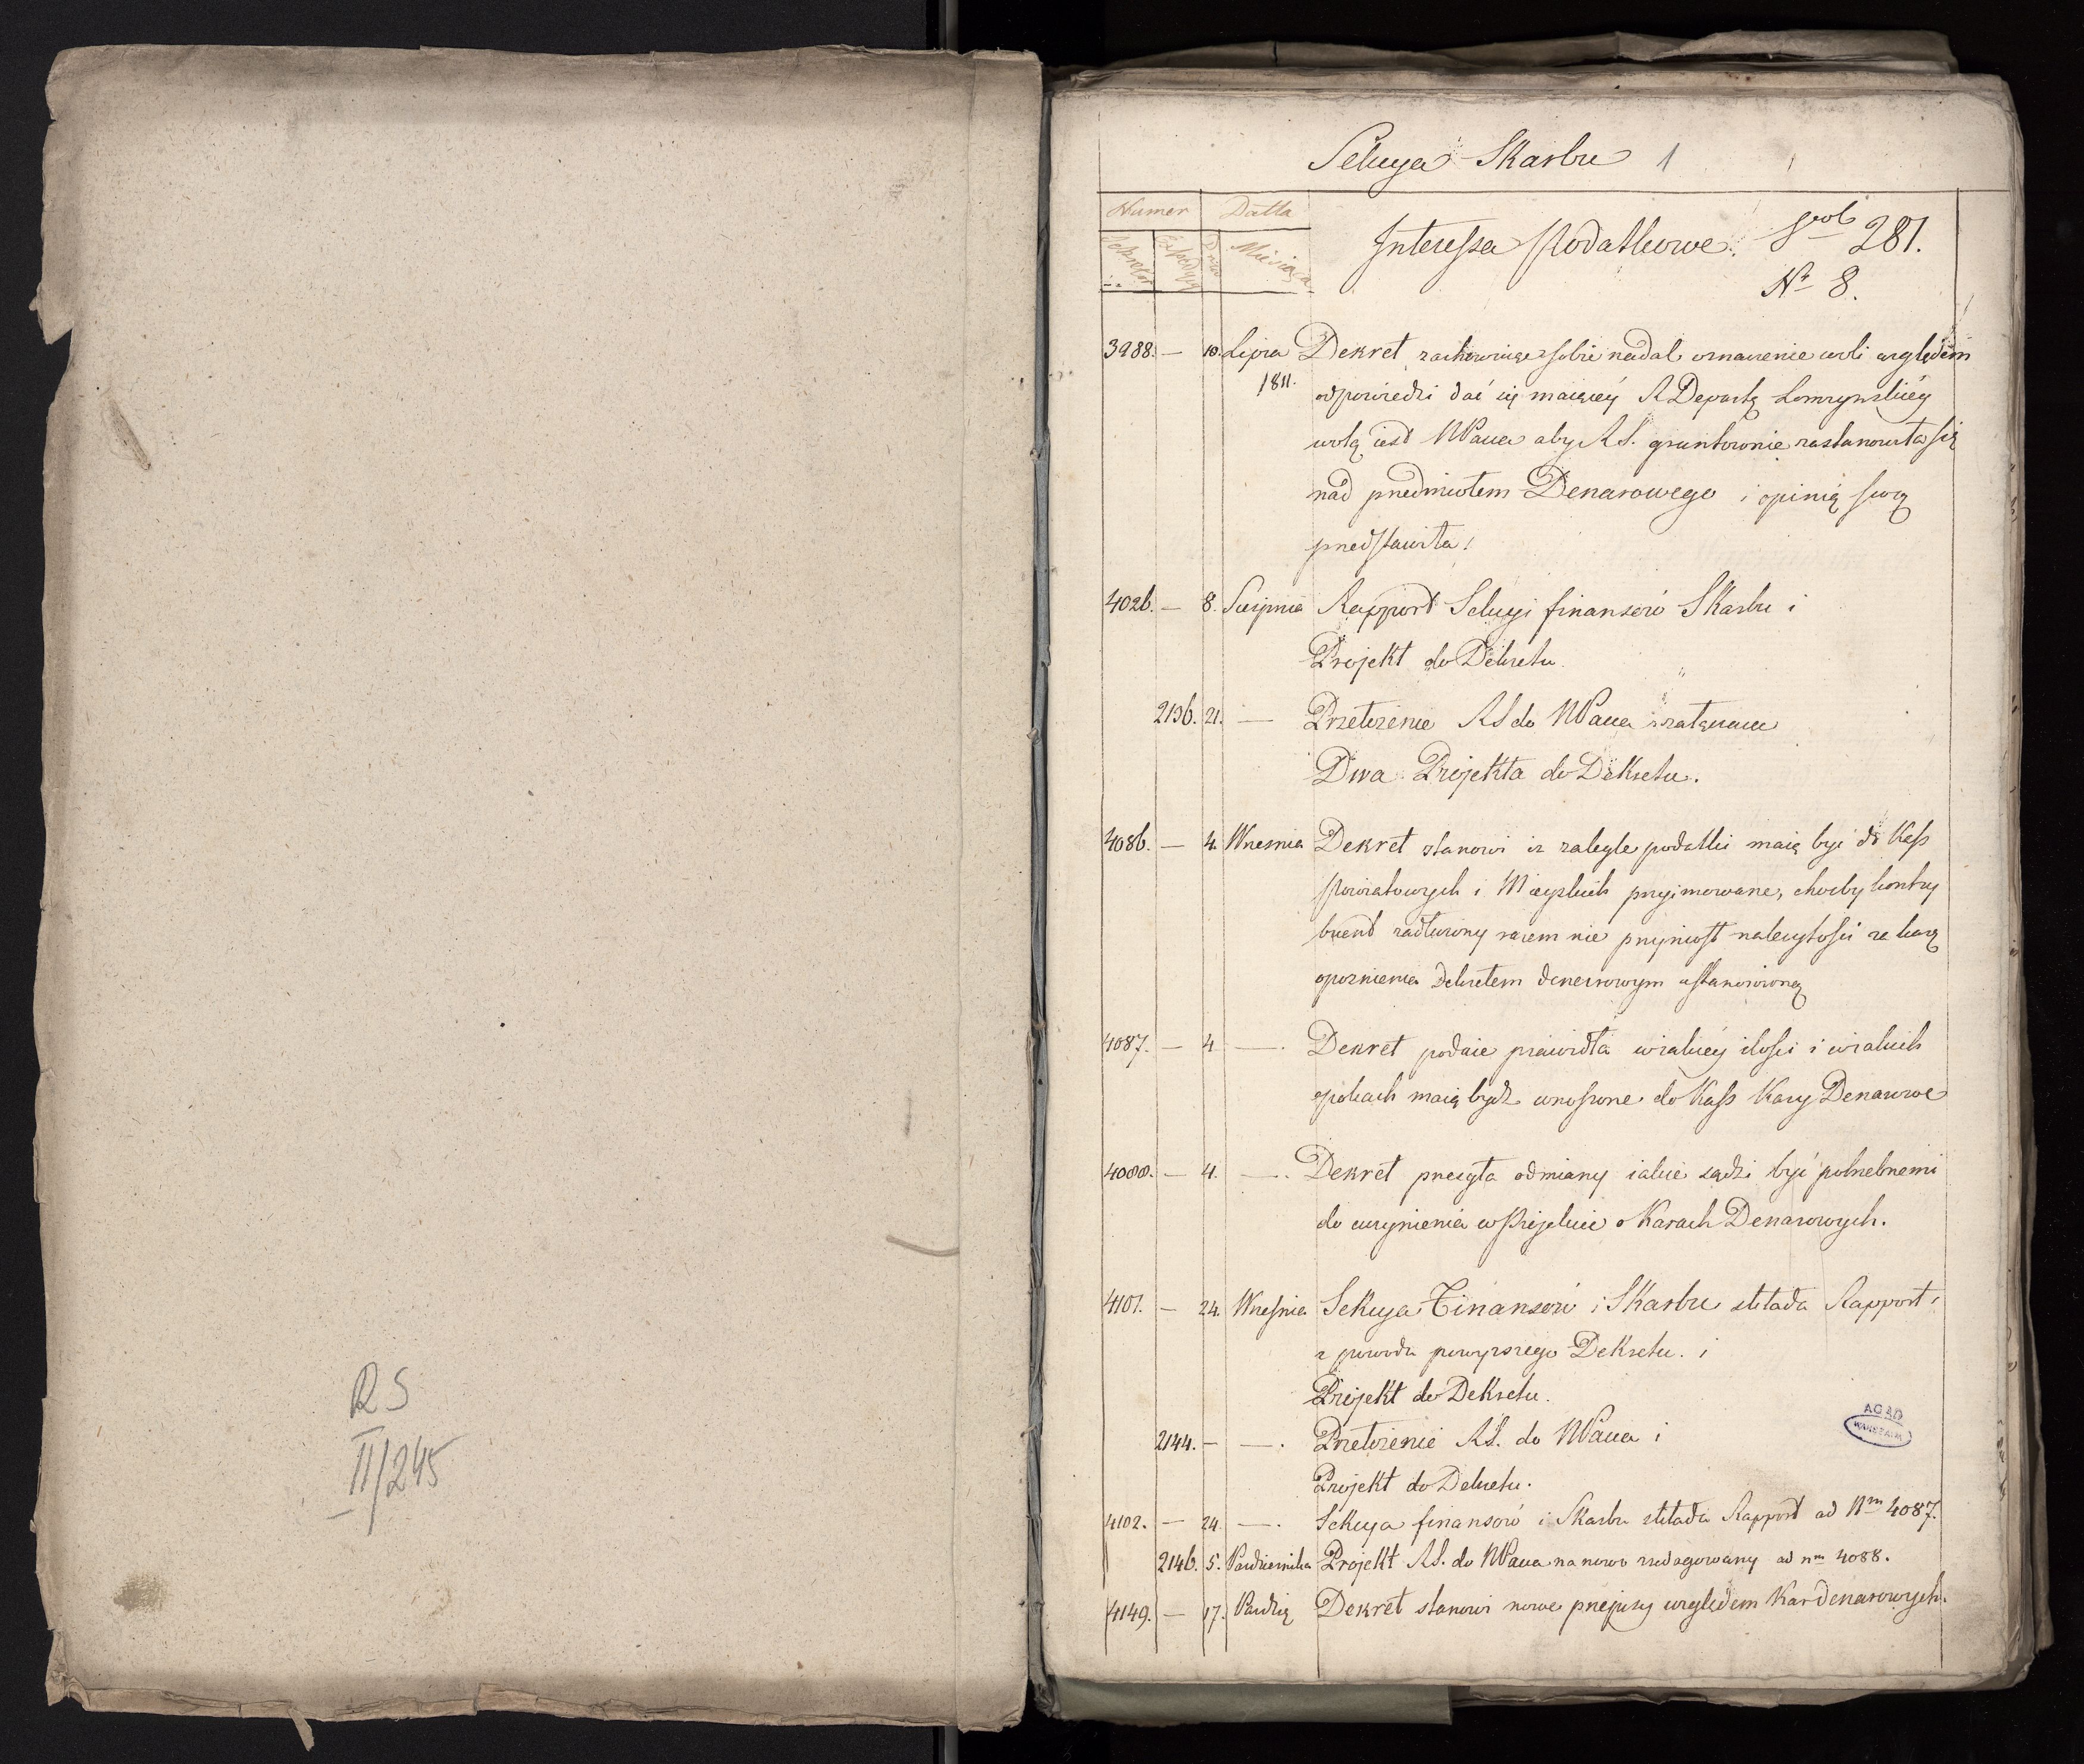 RS
II/245
Sekcya Skarbu 1
Numer Datta
Miesiąca
Interessa Podatkowe. vol 281.
Nr 8.
3988. — 10. Lipca Dekret zachowując sobie nadal oznaczenie woli względem
1811. odpowiedzi dać się maiącey R Depart. Łomżyńskiéy
wolą iest NPana aby RS. gruntownie zastanowiła się
nad przedmiotem Denarowego i opinią swą
przedstawiła!
4026. — 8. Sierpnia Rapport Sekcyi finansów Skarbu i
Projekt do Dekretu.
2136. 21. — Przełożenie RS do NPana i załączone
Dwa Projekta do Dekretu.
4086. — 4. Wrzesnia Dekret stanowi iz zaległe podatki maią być do Kass
Powiatowych i Mieyskich przyimowane, choćby kontry
buent zadłużony razem nie przyniosł należytości za karę
opoznienia Dekretem denarowym ustanowioną
4087. — 4 —. Dekret podaie prawidła wiakiéy ilości i wiakich
epokach maią bydź wnoszone do Kass Kary Denarowe
4088. — 4. —. Dekret przesyła odmiany iakie sądzi być potrzebnemi
do uczynienia w Projekcie o Karach Denarowych.
4101. — 24. Września Sekcya Finansów i Skarbu składa Rapport
z powodu powyzszego Dekretu. i
Projekt do Dekretu.
2144. - —. Przełożenie RS. do NPana i
Projekt do Dekretu.
4102. — 24 —. Sekcya finansów i Skarbu składa Rapport ad Nm 4087.
2146. 5. Pazdziernika Projekt RS. do NPana na nowo redagowany ad nm 4088.
4149. — 17. Pazdzią Dekret stanowi nowe przepisy względem Kar denarowych.
AGAD
WARSZAWA